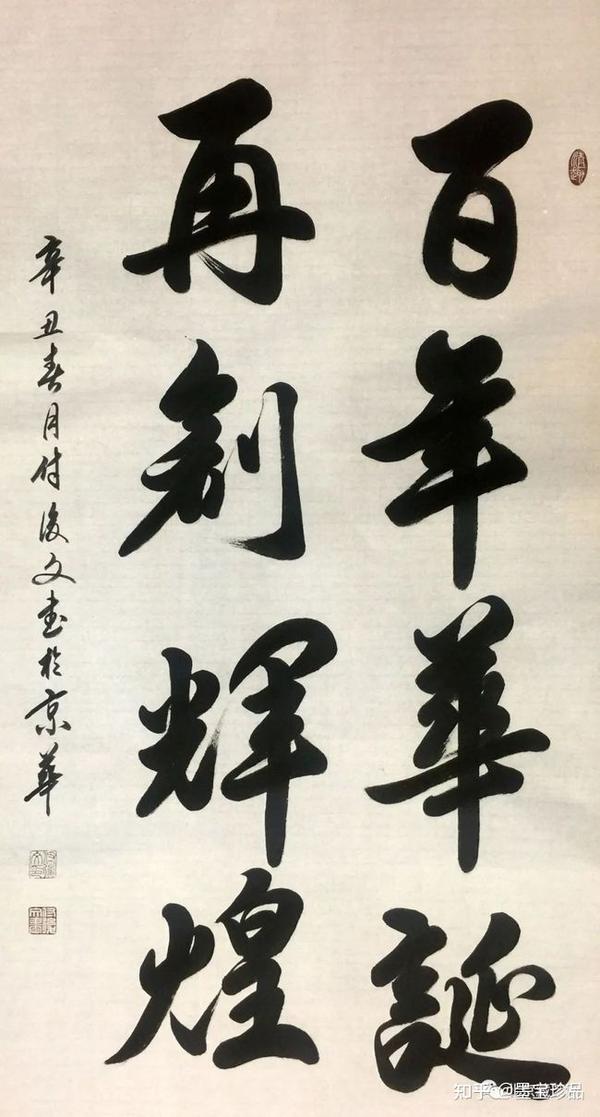 百年華誕
再創輝煌
辛丑春月付後文書於京華
知乎 @墨宝珍品